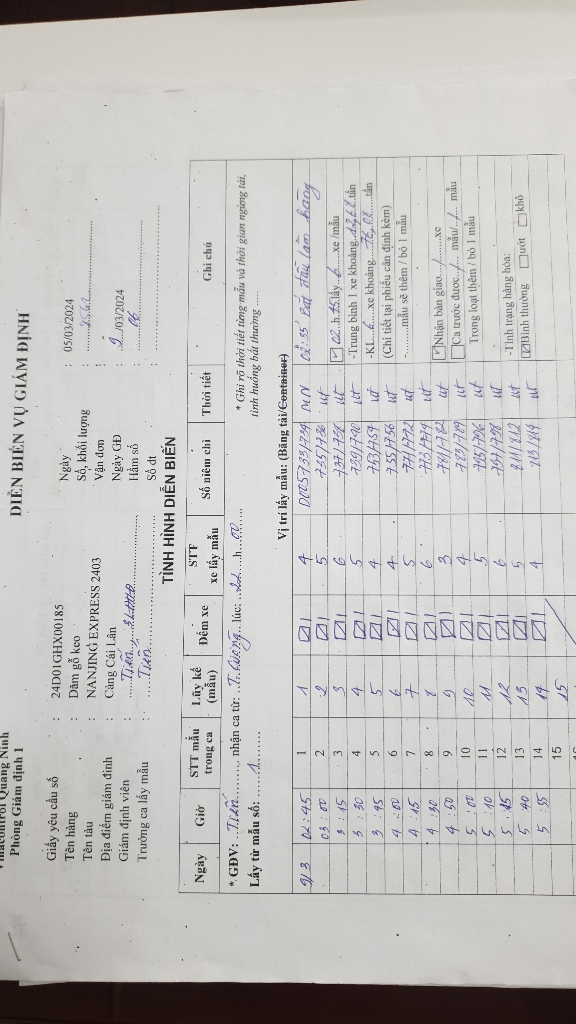 Vinacontrol Quảng Ninh
Phòng Giám định 1
DIỄN BIẾN VỤ GIÁM ĐỊNH
Giấy yêu cầu số : 24D01GHX00185
Ngày : 05/03/2024
Tên hàng : Dăm gỗ keo
Số, khối lượng :
Tên tàu : NANJING EXPRESS 2403
Vận đơn :
Địa điểm giám định : Cảng Cái Lân
Ngày GĐ : 9/03/2024
Giám định viên : Tiến
Hầm số :
Trưởng ca lấy mẫu : Tiến
Số đt :
TÌNH HÌNH DIỄN BIẾN
Ngày Giờ STT mẫu trong ca Lũy kế (mẫu) Đếm xe STT xe lấy mẫu Số niêm chì Thời tiết Ghi chú
*. GĐV: Tiến nhận ca từ: T. Cường lúc: 22 h 00
* Ghi rõ thời tiết từng mẫu và thời gian ngừng tải,
Lấy từ mẫu số: 1
tình huống bất thường .....
Vị trí lấy mẫu: (Băng tải/Container)
9/3 02:45 1 1 4 D0057331734
03:00 2 2 5 735/736 nt
3:15 3 3 6 737/738 nt
3:30 4 4 5 739/740 nt
3:45 5 5 4 753/754 nt
4:00 6 6 4 755/756 nt
4:15 7 7 5 771/772 nt
4:30 8 8 6 773/774 nt
4:50 9 9 3 781/782 nt
5:00 10 10 4 783/784 nt
5:10 11 11 5 795/796 nt
5:25 12 12 6 797/798 nt
5:40 13 13 5 811/812 nt
5:55 14 14 4 813/814 nt
15 15
02:35 bắt đầu làm hàng
lấy 6 xe /mẫu
-Trung bình 1 xe khoảng tấn
-KL 6 xe khoảng tấn
(Chi tiết tại phiếu cân đính kèm)
- mẫu sẽ thêm / bỏ 1 mẫu
Nhận bàn giao / xe
Ca trước được / mẫu/ / mẫu
Trong loạt thêm / bỏ 1 mẫu
-Tình trạng hàng hóa:
Bình thường ướt khô